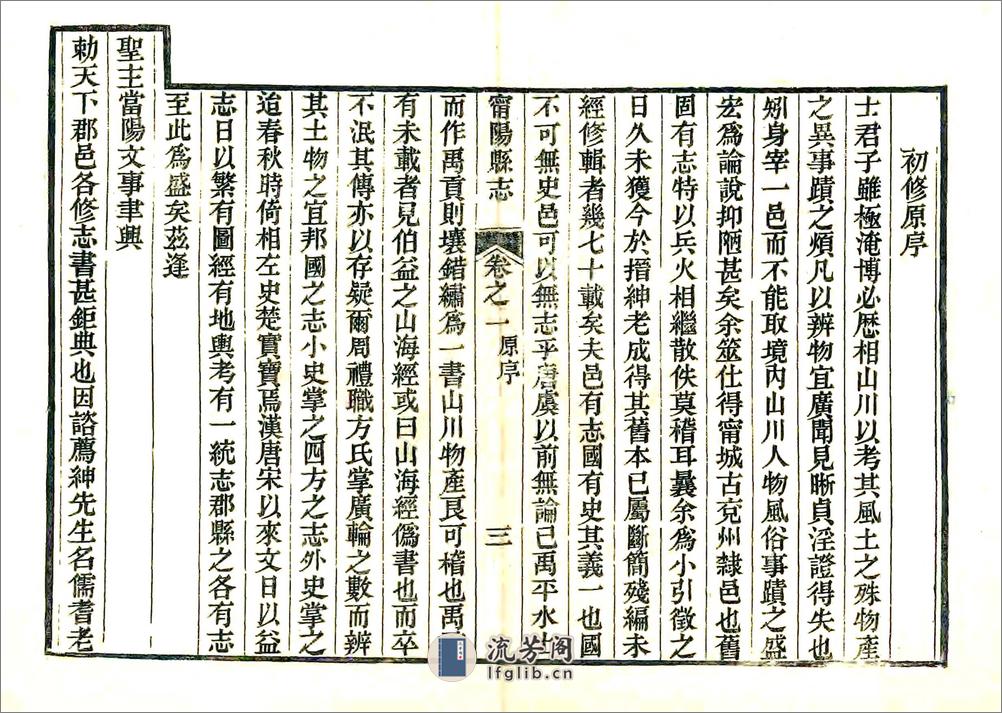 初修原序
士君子雖極淹博必歷相山川以考其風土之殊物產
之異事蹟之煩凡以辨物宜廣聞見晰貞淫證得失也
矧身宰一邑而不能取境內山川人物風俗事蹟之盛
宏爲論說抑陋甚矣余筮仕得甯城古兗州隸邑也舊
固有志特以兵火相繼散佚莫稽耳曩余爲小引徵之
日久未獲今於搢紳老成得其舊本已屬斷簡殘編未
經修輯者幾七十載矣夫邑有志國有史其義一也國
不可無史邑可以無志乎唐虞以前無論已禹平水土
甯陽縣志 卷之一 原序 三
而作禹貢則壤錯繡爲一書山川物產艮可稽也禹
有未載者見伯益之山海經或曰山海經僞書也而卒
不泯其傳亦以存疑爾周禮職方氏掌廣輪之數而辨
其土物之宜邦國之志小史掌之四方之志外史掌之
迨春秋時倚相左史楚實寶焉漢唐宋以來文日以益
志日以繁有圖經有地輿考有一統志郡縣之各有志
至此爲盛矣茲逢
聖主當陽文事聿興
勅天下郡邑各修志書甚鉅典也因諮薦紳先生名儒耆老
流芳阁
lfglib.cn